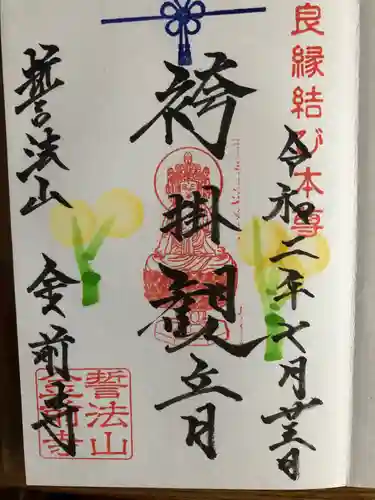 良縁結び本尊
令和二年七月廿三日
袴掛観音
誓法山
金前寺
誓法山
金前寺